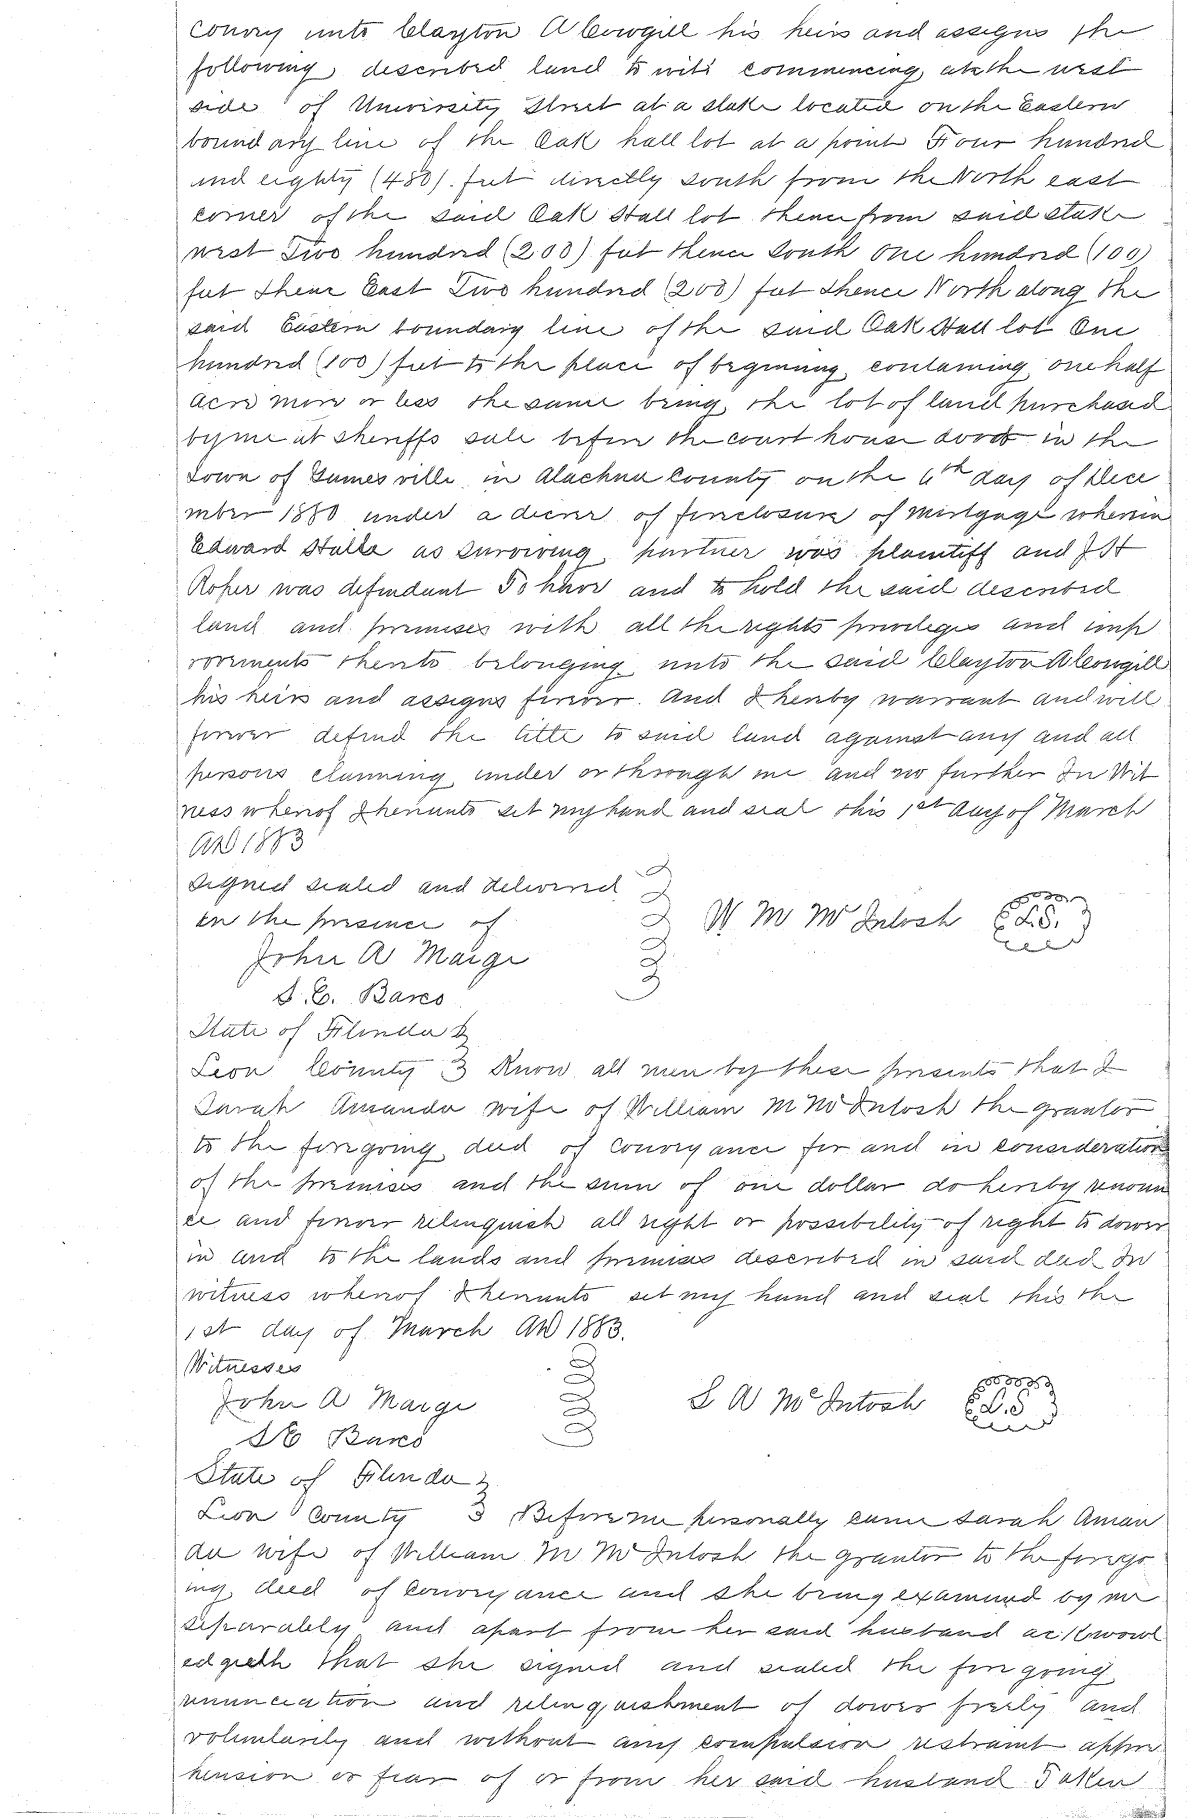 convey unto Clayton A Cowgill his heirs and assigns the
following described land to wit: commencing at the west
side of University Street at a stake located on the Eastern
boundary line of the Oak hall lot at a point Four hundred
and eighty (480) feet directly south from the North east
corner of the said Oak Hall lot thence from said stake
west Two hundred (200) feet thence South one hundred (100)
feet thence East Two hundred (200) feet thence North along the
said Eastern boundary line of the said Oak Hall lot One
hundred (100) feet to the place of beginning containing one half
acre more or less the same being the lot of land purchased
by me at sheriffs sale before the court house door in the
town of Gainesville in Alachua County on the 6th day of Dece
mber 1880 under a decree of foreclosure of mortgage wherein
Edward Halls as surviving partner was plaintiff and J H
Roper was defendant To have and to hold the said described
land and premises with all the rights privileges and imp
rovements thereto belonging unto the said Clayton A Cowgill
his heirs and assigns forever. And I hereby warrant and will
forever defend the title to said land against any and all
persons claiming under or through me and no further In Wit
ness whereof I hereunto set my hand and seal this 1st day of March
AD 1883
Signed sealed and delivered
in the presence of
W M McIntosh L.S.
John A Maige
S. E. Bares
State of Florida
Leon County Know all men by these presents that I
Sarah Amanda wife of William M McIntosh the grantor
to the foregoing deed of conveyance for and in consideration
of the premises and the sum of one dollar do hereby renoun
ce and forever relinquish all right or possibility of right to dower
in and to the lands and premises described in said deed In
witness whereof I hereunto set my hand and seal this the
1st day of March AD 1883.
Witnesses
John A Maige
S A McIntosh L.S
S E Bares
State of Florida
Leon County Before me personally came Sarah Aman
da wife of William M McIntosh the grantor to the forego
ing deed of conveyance and she being examined by me
separately and apart from her said husband acknowl
edgeth that she signed and sealed the foregoing
renunciation and relinquishment of dower freely and
voluntarily and without any compulsion restraint appre
hension or fear of or from her said husband Taken